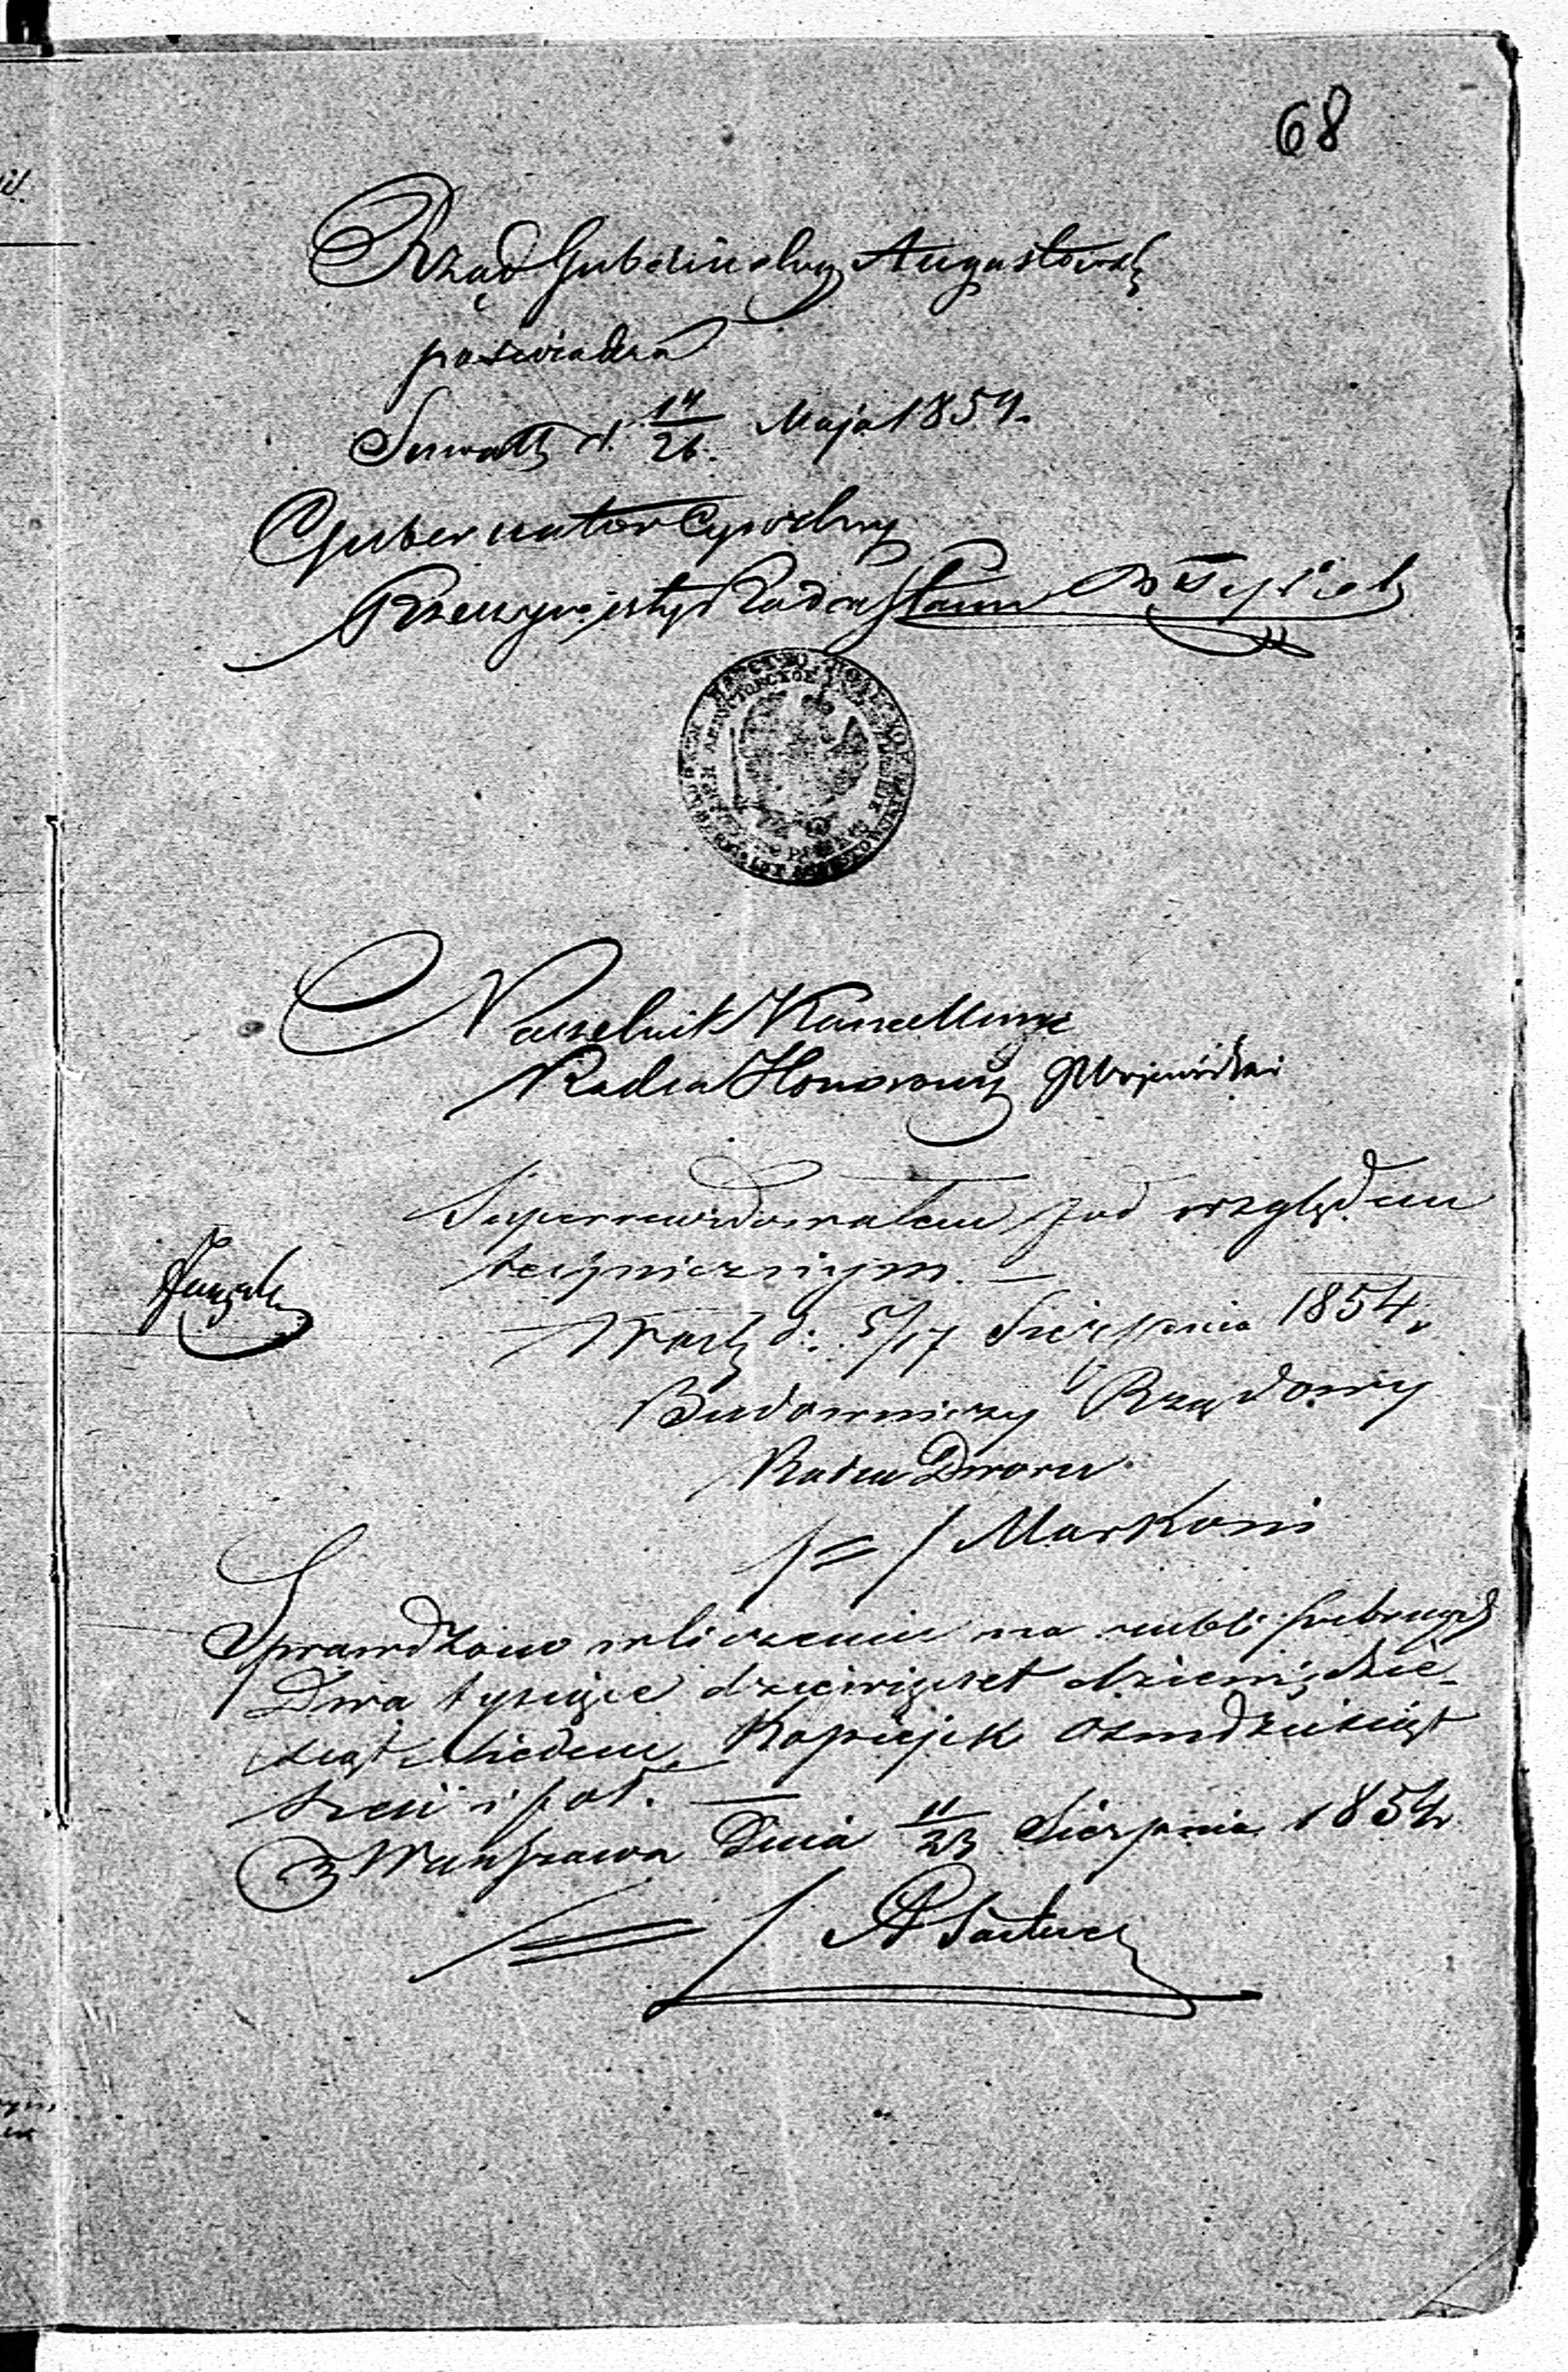 68
Rząd Gubernialny Augustowski
poświadcza
Suwałki d. 14/26. Maja 1854.
Gubernator Cywilny
Rzeczywisty Radca Stanu
Naczelnik Kancellaryi
Radca Honorowy
Superrewidowałem pod względem
technicznym. —
Warsz d: 5/17 Sierpnia 1854.
Budowniczy Rządowy
Radca Dworu
/=/ Markoni
Sprawdzono w liczeniu na rubli srebrnych
Dwa tysiące dziewięćset dziewiędzie-
siąt jeden, Kopiejek Osmdziesiąt
sześć i pół. —
Warszawa Dnia 11/23 Sierpnia 1854